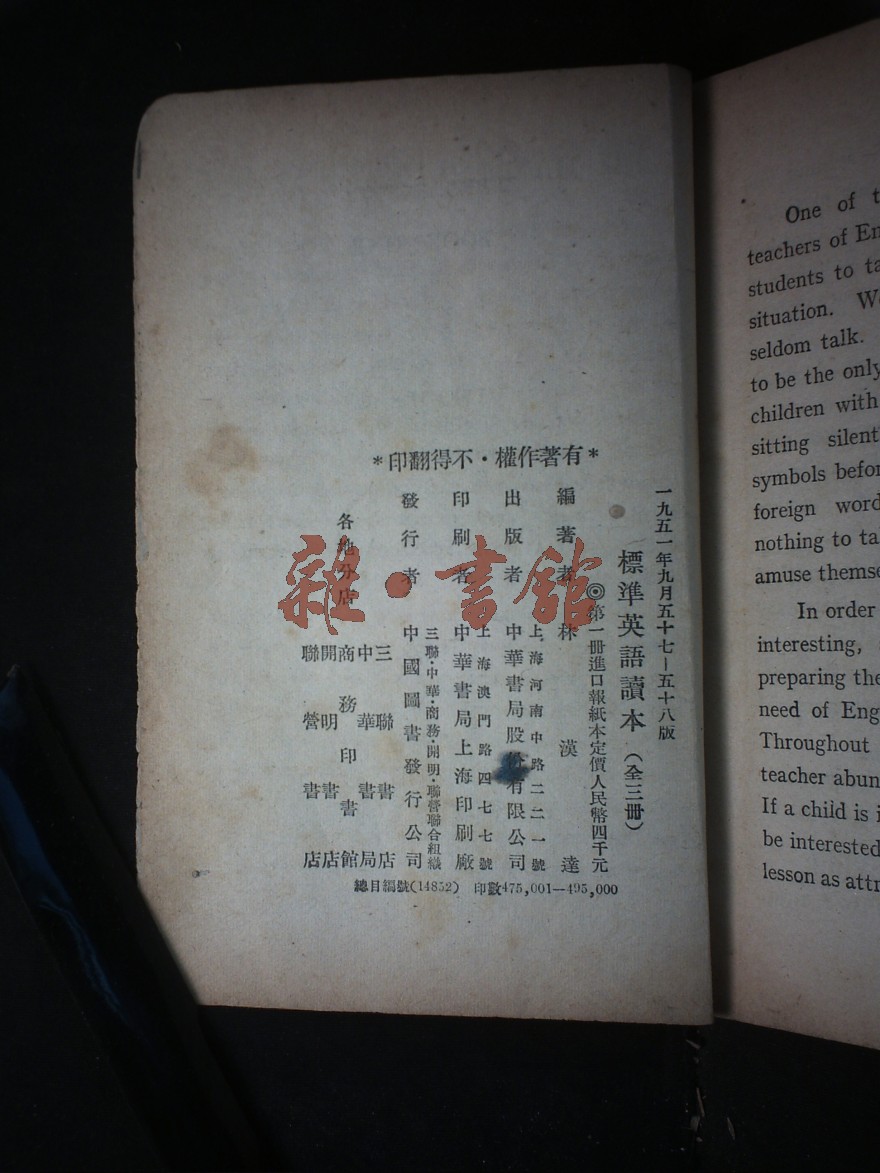 *有著作權·不得翻印*
一九五一年九月五十七—五十八版
標準英語讀本(全三冊)
◎第一冊進口報紙本定價人民幣四千元
編著者 林漢達
出版者 中華書局股份有限公司
上海河南中路二二一號
印刷者 中華書局上海印刷廠
上海澳門路四七七號
發行者 中國圖書發行公司
三聯·中華·商務·開明·聯營聯合組織
各地分店
三聯書店
中華書局
商務印書館
開明書店
聯營書店
總目編號(14852) 印數475,001—495,000
雜·書館
One of t
teachers of En
students to ta
situation. W
seldom talk.
to be the only
children with
sitting silent
symbols befor
foreign word
nothing to ta
amuse themse
In order
interesting,
preparing the
need of Eng
Throughout
teacher abun
If a child is i
be interested
lesson as attr